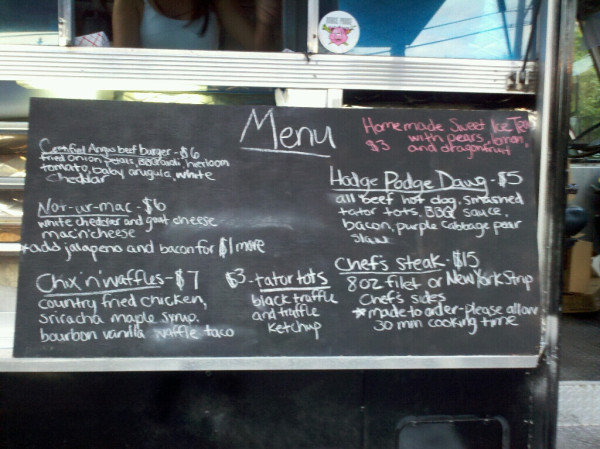 Menu
Homemade Sweet Ice Tea
$3 with pears, lemon,
and dragonfruit
Certified Angus beef burger - $6
fried onion petals, heirloom
tomato, baby arugula, white
cheddar
Not-ur-mac - $6
white cheddar and goat cheese
mac'n'cheese
*add jalapeno and bacon for $1 more
Chix 'n' waffles - $7
country fried chicken,
sriracha maple syrup,
bourbon vanilla waffle taco
$3 - tator tots
black truffle
and truffle
ketchup
Hodge Podge Dawg - $5
all beef hot dog, smashed
tator tots, BBQ sauce,
bacon, purple cabbage pear
slaw
Chef's Steak - $15
8oz filet or New York Strip
Chef's sides
*made to order - please allow
30 min cooking time